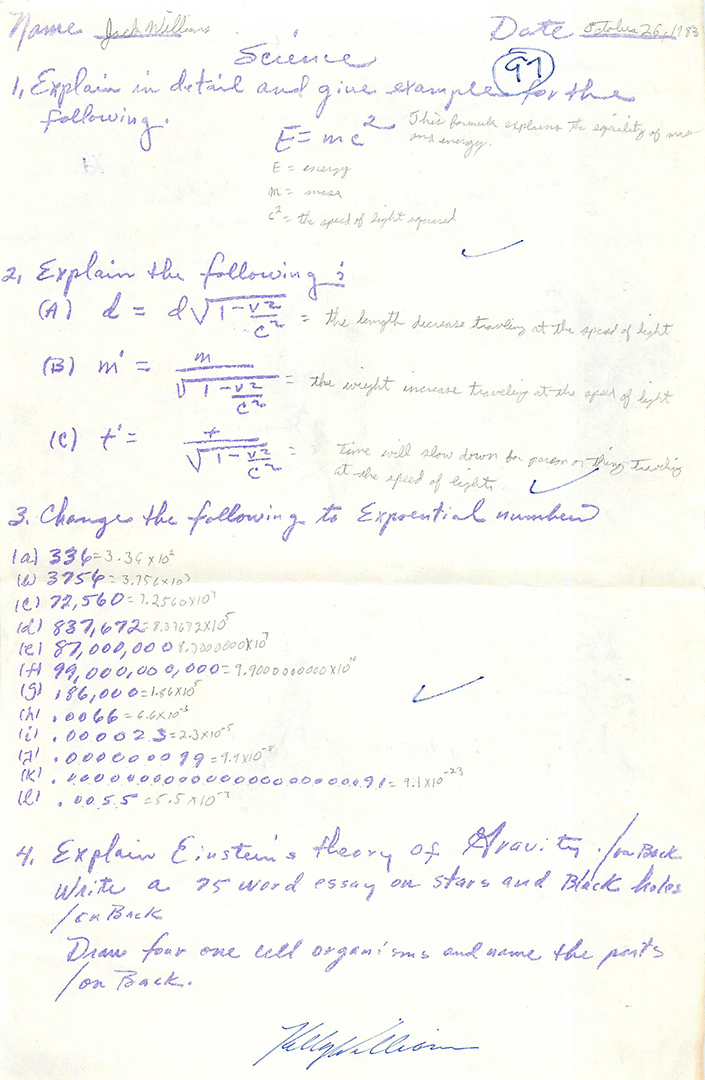 Name Jack Williams Date October 26, 1983
Science
97
1, Explain in detail and give examples for the
following.
E = mc² This formula explains the equility of mass
and energy.
E = energy
m = mass
c² = the speed of light squared
2, Explain the following:
(A) d = d√1-v²/c² = the length decrease traveling at the speed of light
(B) m' = m/√1-v²/c² = the wright increase traveling at the speed of light
(C) t' = t/√1-v²/c² = Time will slow down for person or thing traveling
at the speed of light.
3. Changes the following to Exponential numbers
(a) 336 = 3.36 x 10²
(b) 3756 = 3.756 x 10³
(c) 72,560 = 7.2560 x 10⁴
(d) 837,672 = 8.37672 x 10⁵
(e) 87,000,000 8.7000000 x 10⁷
(f) 99,000,000,000 = 9.9000000000 x 10¹⁰
(g) 186,000 = 1.86 x 10⁵
(h) .0066 = 6.6 x 10⁻³
(i) .000023 = 2.3 x 10⁻⁵
(j) .000000099 = 9.9 x 10⁻⁸
(k) = 9.1 x 10⁻²³
(l) .0055 = 5.5 x 10⁻³
4. Explain Einstein's theory of Gravity. /on Back
Write a 75 word essay on stars and Black holes
/on Back
Draw four one cell organisms and name the parts
/on Back.
Kelly Williams